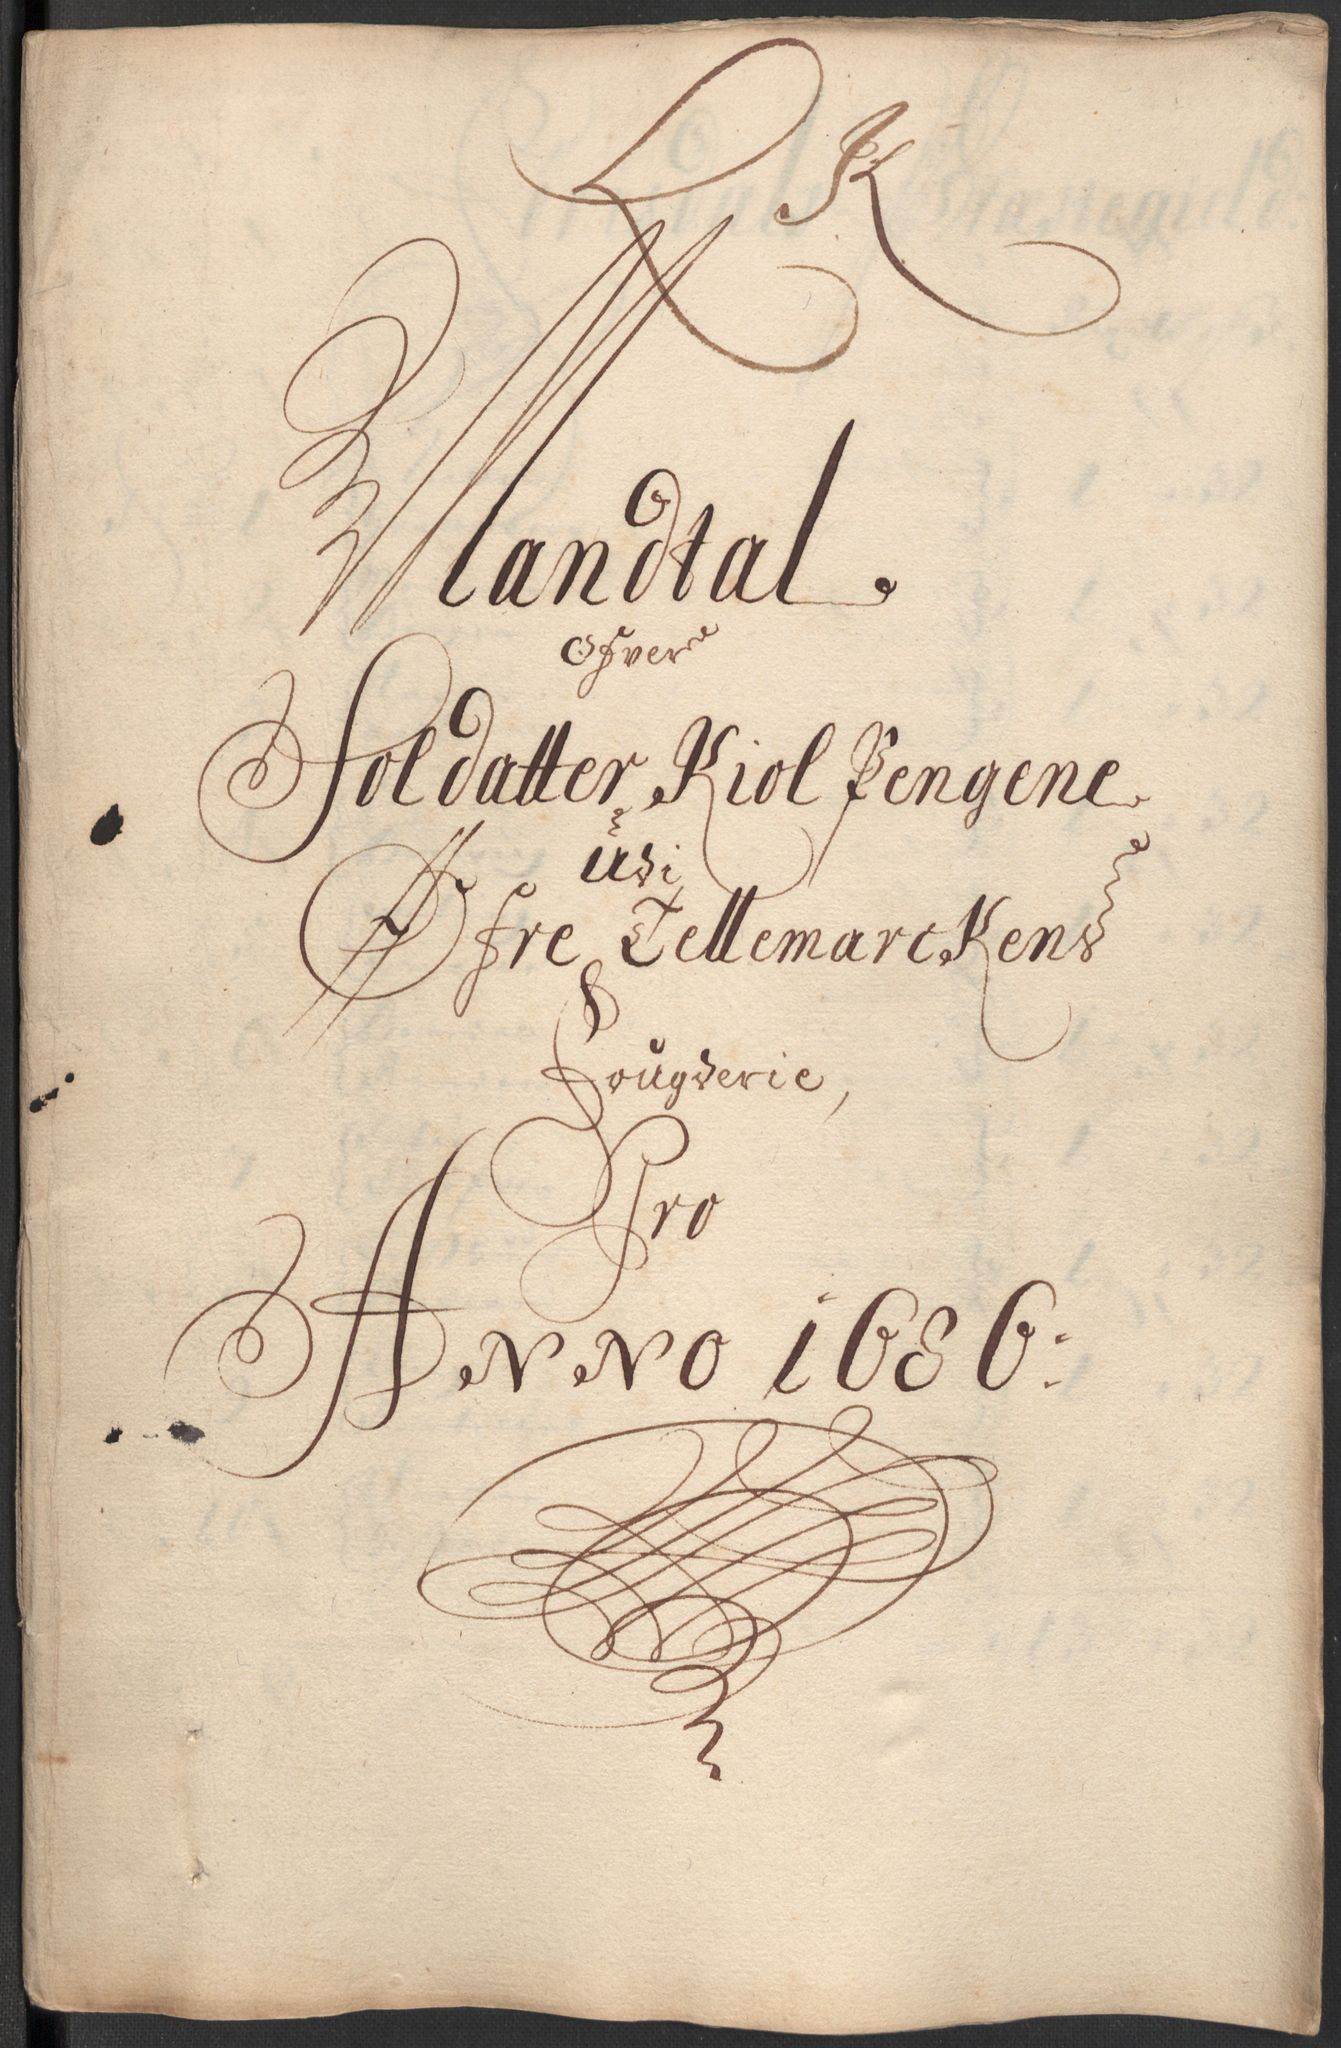 L K
Mandtal.
Ofver
Soldatter Kiol Pengene
udi
Øfre Tellemarckens
Fougderie,
Pro
Anno 1686: